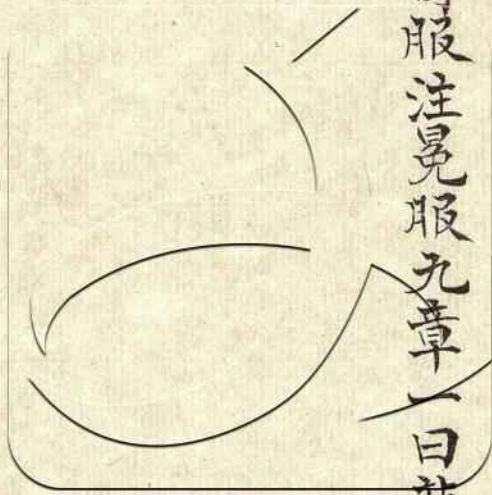 服注冕服九章一曰